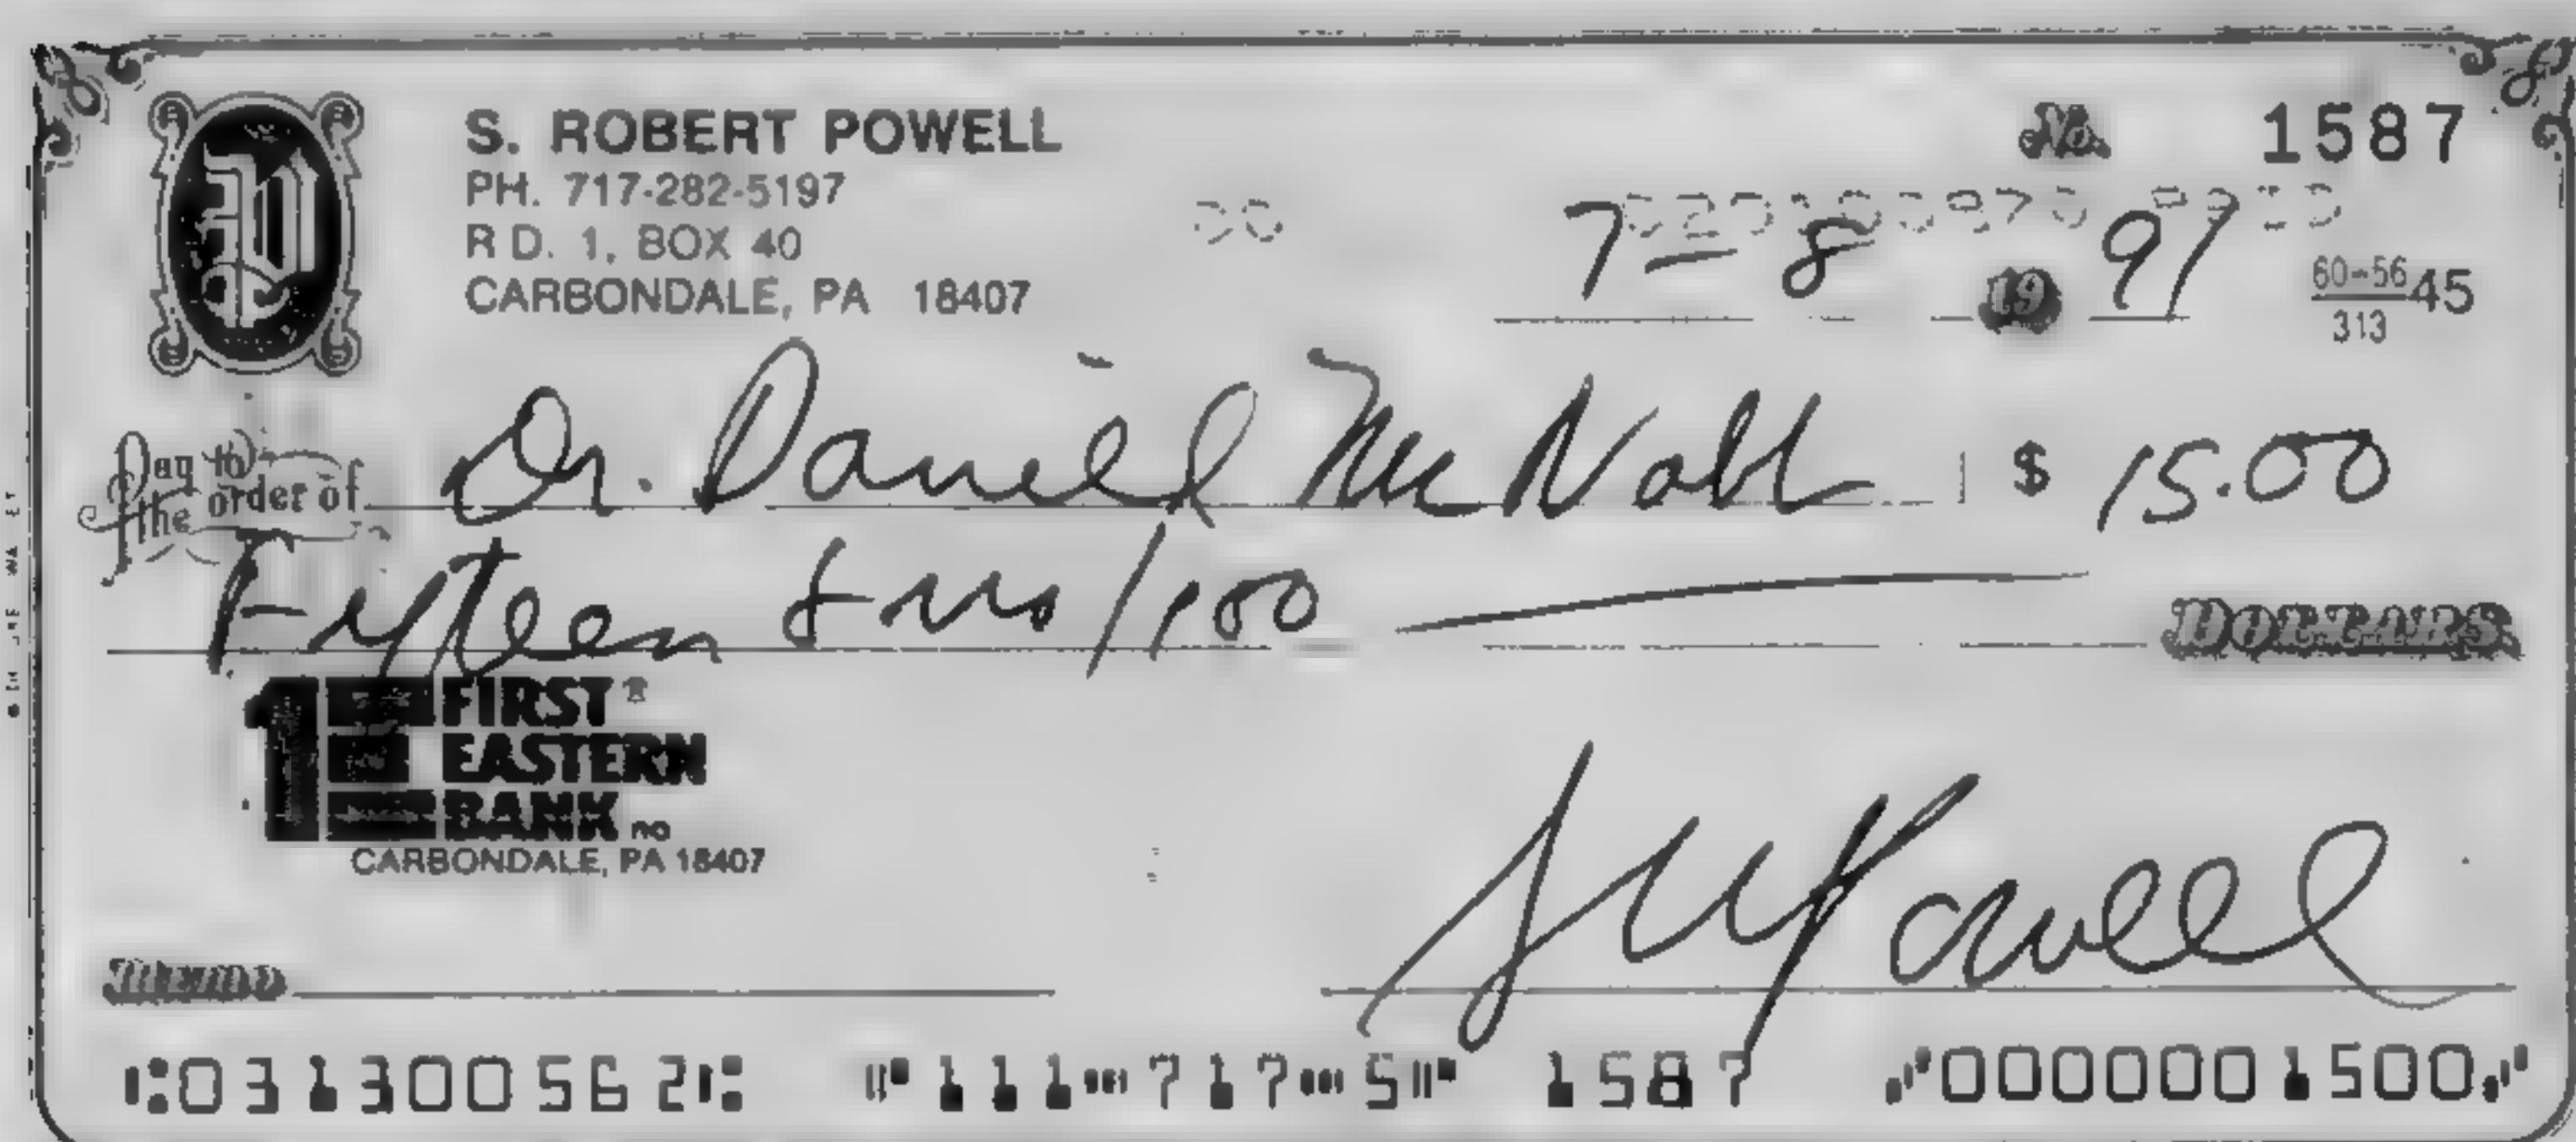 S. ROBERT POWELL
PH. 717-282-5197
R D. 1, BOX 40
CARBONDALE, PA 18407
No. 1587
7-8 19 91
60-56 45
313
Pay to the order of Dr. Daniel McNabb $ 15.00
Fifteen & no/100 DOLLARS
1E FIRST EASTERN BANK na
CARBONDALE, PA 18407
Memo
S R Powell
⑆031300562⑆ ⑈111⑉717⑉5⑈ 1587 ⑇0000001500⑇